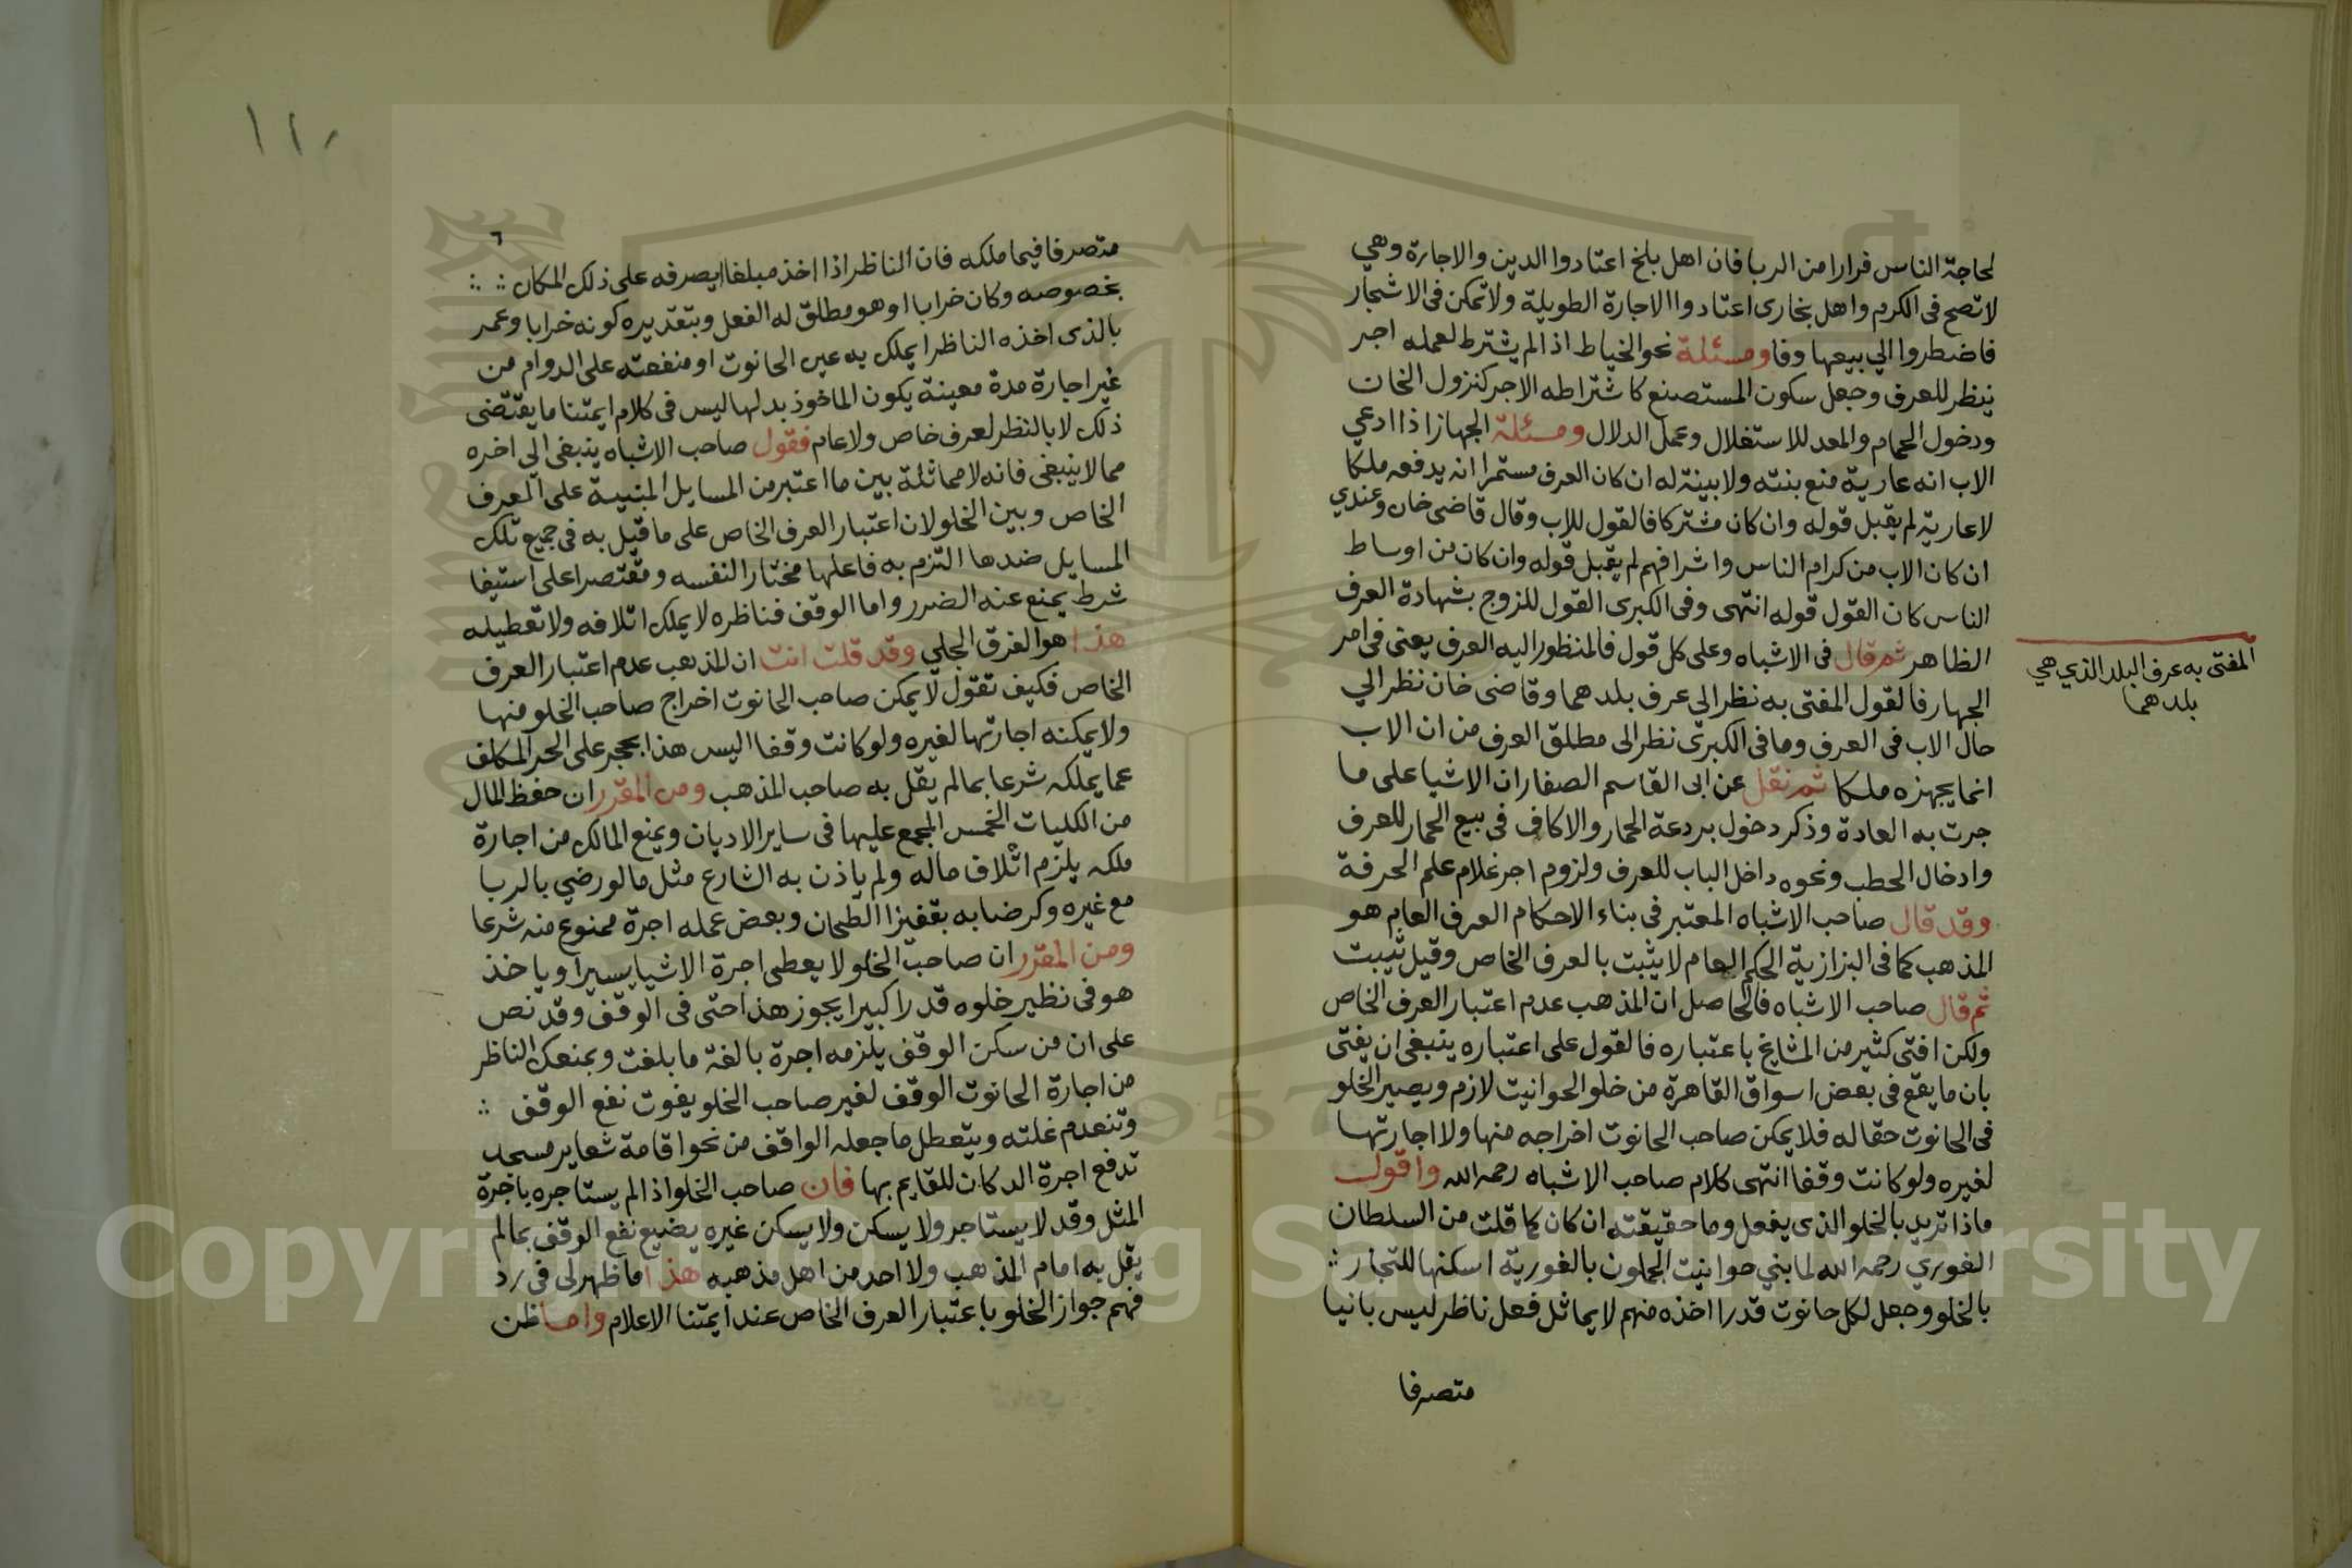 لحاجة الناس فرارا من الربا فان اهل بلخ اعتادوا الدين والاجارة وهي
لا تصح في الكرم واهل بخارى اعتادوا الاجارة الطويلة ولا تمكن في الاشجار
فاضطروا الي بيعها وفا ومسئلة نحو الخياط اذا لم يشترط لعمله اجر
ينظر للعرف وجعل سكون المستصنع كاشتراطه الاجر كنزول الخان
ودخول الحمام والمعد للاستغلال وعمل الدلال ومسئلة الجهاز اذا ادعي
الاب انه عارية منع بنته ولا بينة له ان كان العرف مستمرا انه يدفعه ملكا
لا عارية لم يقبل قوله وان كان مشتركا فالقول للاب وقال قاضى خان وعندي
ان كان الاب من كرام الناس واشرافهم لم يقبل قوله وان كان من اوساط
الناس كان القول قوله انتهى وفى الكبرى القول للزوج بشهادة العرف
الظاهر ثم قال فى الاشباه وعلى كل قول فالمنظور اليه العرف يعنى فى امر
الجهاز فالقول المفتى به نظر الي عرف بلدهما وقاضى خان نظر الي
حال الاب فى العرف وما فى الكبرى نظر الى مطلق العرف من ان الاب
انما يجهزه ملكا ثم نقل عن ابى القاسم الصفار ان الاشيا على ما
جرت به العادة وذكر دخول بردعة الحمار والاكاف فى بيع الحمار للعرف
وادخال الحطب ونحوه داخل الباب للعرف ولزوم اجر غلام علم الحرفة
وقد قال صاحب الاشباه المعتبر فى بناء الاحكام العرف العام هو
المذهب كما فى البزازية الحكم العام لا يثبت بالعرف الخاص وقيل يثبت
ثم قال صاحب الاشباه فالحاصل ان المذهب عدم اعتبار العرف الخاص
ولكن افتى كثير من المشايخ باعتباره فالقول على اعتباره ينبغى ان يفتى
بان ما يقع فى بعض اسواق القاهرة من خلو الحوانيت لازم ويصير الخلو
فى الحانوت حقا له فلا يمكن صاحب الحانوت اخراجه منها ولا اجارتها
لغيره ولو كانت وقفا انتهى كلام صاحب الاشباه رحمه الله واقول
ماذا تريد بالخلو الذى يفعل وما حقيقته ان كان كما قلت من السلطان
الغوري رحمه الله لما بني حوانيت الجملون بالغورية اسكنها للتجار
بالخلو وجعل لكل حانوت قدرا اخذه منهم لا يماثل فعل ناظر ليس بانيا
متصرفا
المفتى به عرف البلد الذي هي
بلدهما
متصرفا فيما ملكه فان الناظر اذا اخذ مبلغا ليصرفه على ذلك المكان
بخصوصه وكان خرابا او هو مطلق له الفعل وبتقديره كونه خرابا وعمر
بالذى اخذه الناظر ايملك به عين الحانوت او منفعته على الدوام من
غير اجارة مدة معينة يكون الماخوذ بدلها ليس فى كلام ايمتنا ما يقتضى
ذلك لا بالنظر لعرف خاص ولا عام فقول صاحب الاشباه ينبغى الى اخره
مما لا ينبغى فانه لا مماثلة بين ما اعتبر من المسايل المبنيية على العرف
الخاص وبين الخلو لان اعتبار العرف الخاص على ما قيل به فى جميع تلك
المسايل ضدها التزم به فاعلها مختارا لنفسه ومقتصرا على استيفا
شرط يمنع عنه الضرر واما الوقف فناظره لا يملك اتلافه ولا تعطيله
هذا هو الفرق الجلي وقد قلت انت ان المذهب عدم اعتبار العرف
الخاص فكيف تقول لا يمكن صاحب الحانوت اخراج صاحب الخلو منها
ولا يمكنه اجارتها لغيره ولو كانت وقفا اليس هذا بحجر على الحر المكلف
عما يملكه شرعا بما لم يقل به صاحب المذهب ومن المقرر ان حفظ المال
من الكليات الخمس المجمع عليها فى ساير الاديان ويمنع المالك من اجارة
ملكه يلزم اتلاف ماله ولم ياذن به الشارع مثل ما لو رضي بالربا
مع غيره وكرضا به بقفيز الطحان وبعض عمله اجرة ممنوع منه شرعا
ومن المقرر ان صاحب الخلو لا يعطى اجرة الا شيا يسيرا وياخذ
هو فى نظير خلوه قدرا كبيرا يجوز هذا حتى فى الوقف وقد نص
على ان من سكن الوقف يلزمه اجرة بالغة ما بلغت وبمنعك الناظر
من اجارة الحانوت الوقف لغير صاحب الخلو يفوت نفع الوقف
وتنعدم غلته ويتعطل ما جعله الواقف من نحو اقامة شعاير مسجد
تدفع اجرة الدكان للقايم بها فان صاحب الخلو اذا لم يستاجره باجرة
المثل وقد لا يستاجر ولا يسكن ولا يسكن غيره يضيع نفع الوقف بما لم
يقل به امام المذهب ولا احد من اهل مذهبه هذا ما ظهر لى فى رد
فهم جواز الخلو باعتبار العرف الخاص عند ايمتنا الاعلام واما ظن
Copyright © King Saud University
1957